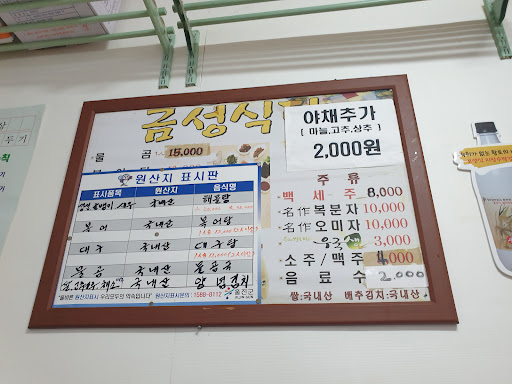 금성식당
물 곰 15,000
야채추가
[ 마늘,고추,상추 ]
2,000원
원산지 표시판
표시품목 원산지 음식명
국내산 해물탕
복어 국내산 복어탕
대구 국내산 대구탕
물곰 국내산 물곰국
국내산 양념,김치
"올바른 원산지표시 우리모두의 약속입니다" 원산지표시문의 : 1588-8112 울진군
주 류
백 세 주 8,000
名作 복분자 10,000
名作 오미자 10,000
3,000
소주/맥주 4,000
음 료 수 2,000
쌀:국내산 배추김치:국내산